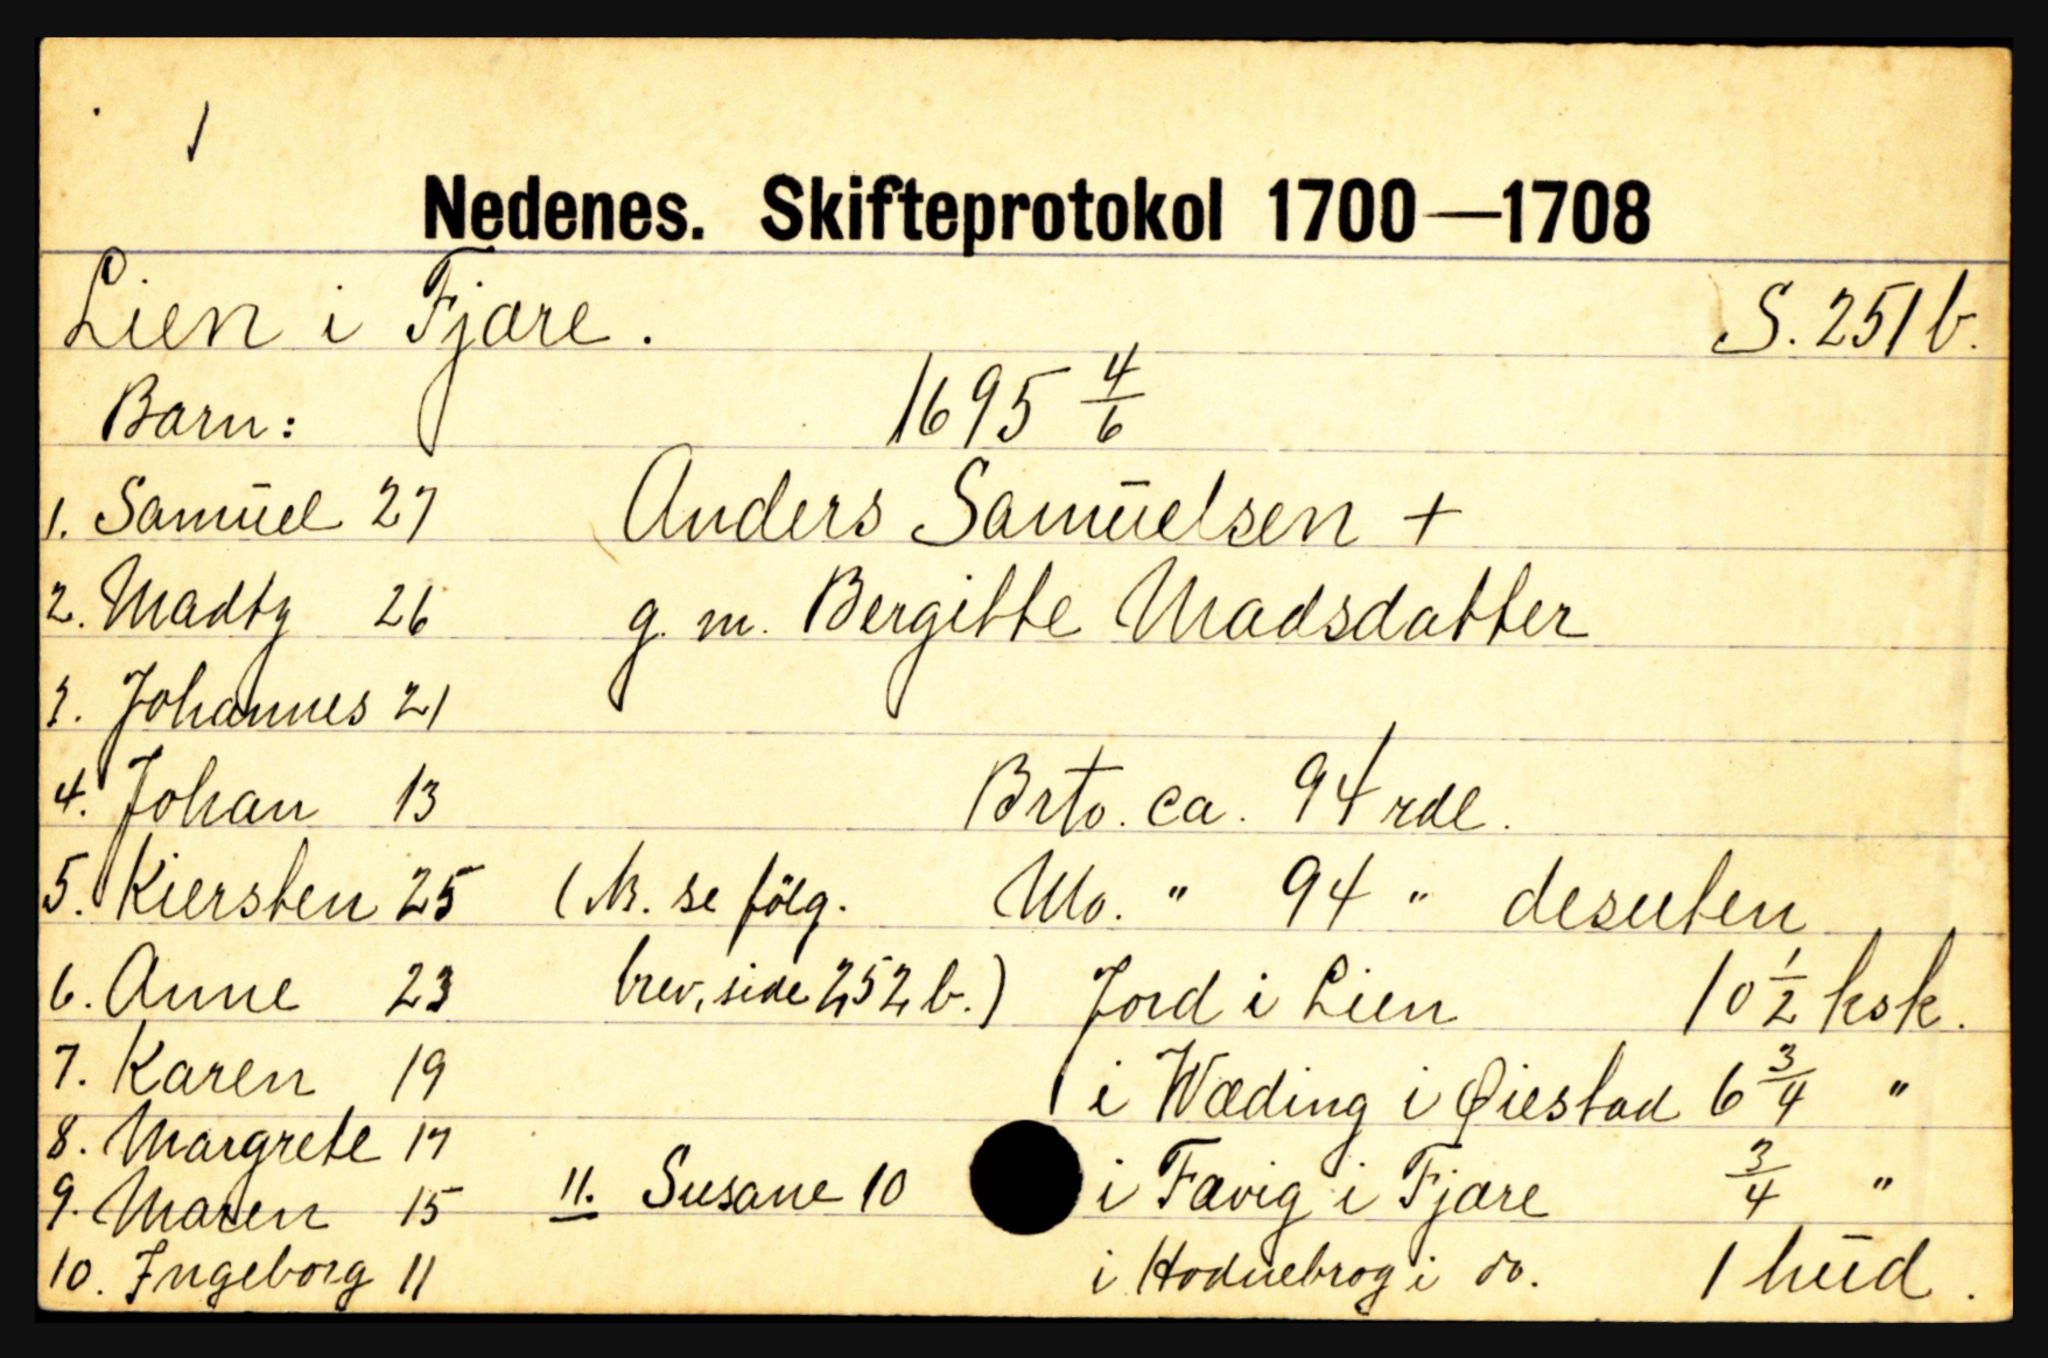 1
Nedenes. Skifteprotokol 1700—1708
Lien i Fjære. S. 251 b.
Barn: 1695 4/6
1. Samūel 27 Anders Samūelsen +
2. Madtz 26 g. m. Bergitte Madsdatter
3. Johannes 21
4. Johan 13 Brto. ca. 94 rdl.
5. Kiersten 25 (N. se følg. No. " 94 " desuten
6. Anne 23 brev, side 252 b.) Jord i Lien 10 1/2 ksk.
7. Karen 19 i Wæding i Øiestad 6 3/4 "
8. Margrete 17
9. Maren 15 11. Susane 10 i Fævig i Fjære 3/4 "
10. Ingeborg 11 i Hodnebrog i do. 1 hūd.